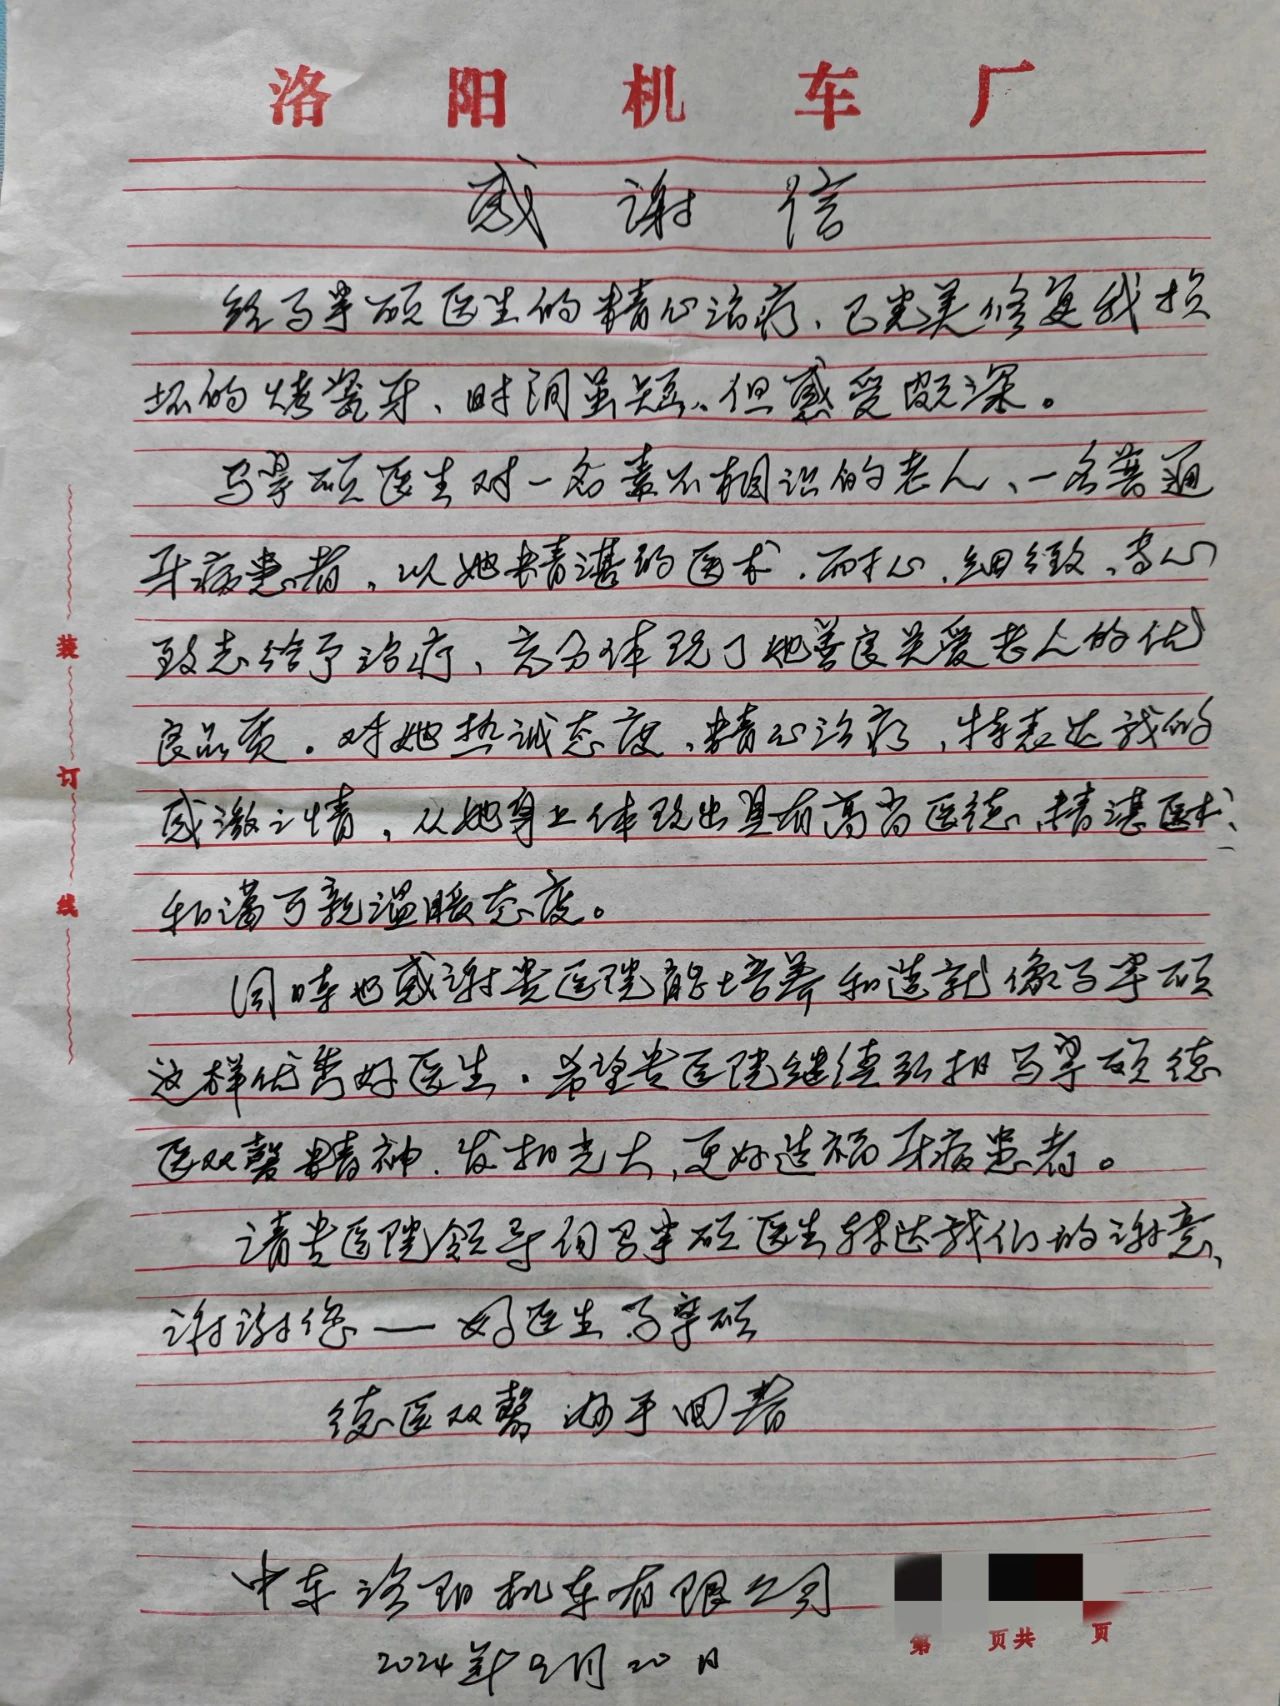 洛阳机车厂
感谢信
经马 硕医生的精心治疗、已完美修复我损
坏的烤瓷牙、时间虽短、但感受颇深。
马 硕医生对一名素不相识的老人、一名普通
牙病患者，以她精湛的医术．耐心、细致、专心
致志给予治疗、充分体现了她善良关爱老人的优
良品质．对她热诚态度、精心治疗，特表达我的
感激之情，从她身上体现出具有高尚医德、精湛医术、
和蔼可亲温暖态度。
同时也感谢贵医院能培养和造就像马 硕
这样优秀好医生．希望贵医院继续弘扬马 硕德
医双馨精神．发扬光大，更好造福牙病患者。
请贵医院领导向马 硕医生转达我们的谢意、
谢谢您——好医生马 硕
德医双馨 妙手回春
中车洛阳机车有限公司
2024年9月20日
第 页共 页
装
订
线